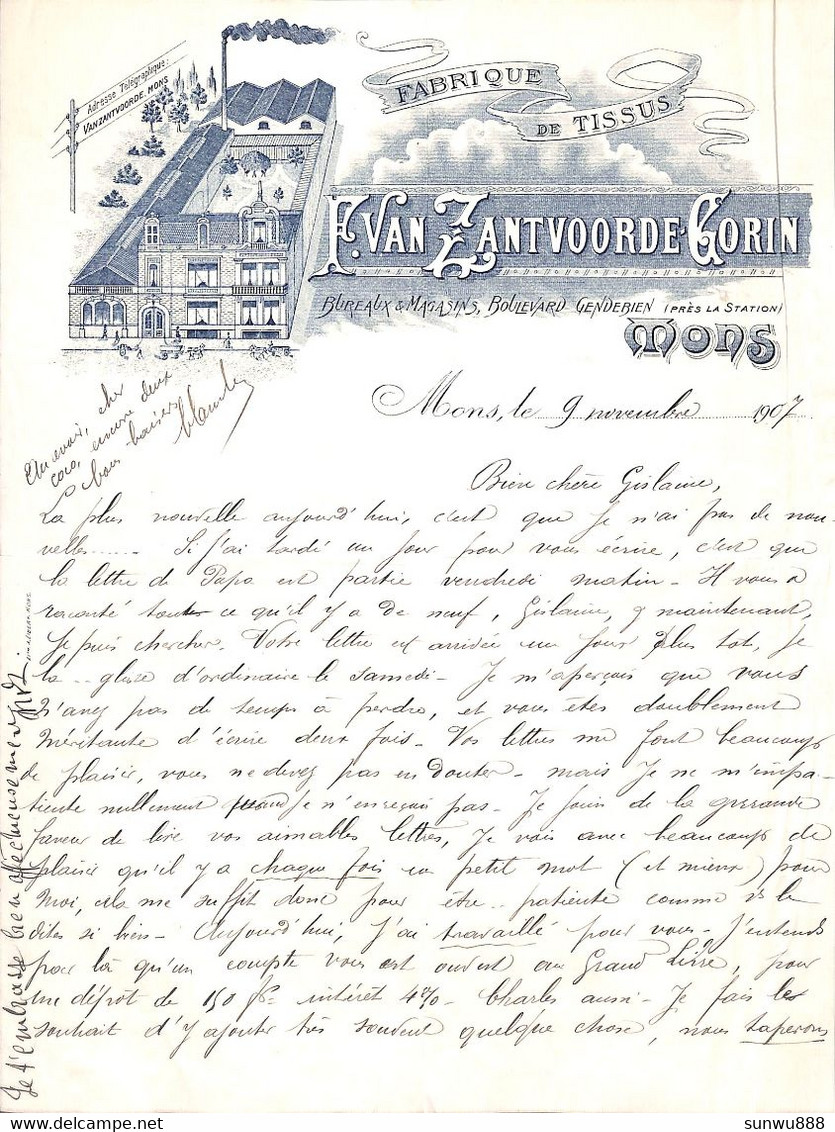 Adresse Télégraphique:
VANZANTVOORDE. MONS
FABRIQUE
DE TISSUS
F. VAN ZANTVOORDE-GORIN
BUREAUX & MAGASINS, BOULEVARD GENDEBIEN (PRÈS LA STATION)
MONS
Mons, le 9 novembre 1907
Au revoir, cher
coco, encore deux
bons baisers
Blanche
Bien chère Gislaine,
La plus nouvelle aujourd'hui, c'est que je n'ai pas de nou-
velles...... Si j'ai tardé un jour pour vous écrire, c'est que
la lettre de Papa est partie vendredi matin - Il vous a
raconté tout ce qu'il y a de neuf, Gislaine, & maintenant,
je puis chercher. Votre lettre est arrivée un jour plus tot, je
la .. glose d'ordinaire le samedi - Je m'aperçois que vous
n'avez pas de temps à perdre, et vous êtes doublement
méritante d'écrire deux fois - Vos lettres me font beaucoup
de plaisir, vous ne devez pas en douter - mais je ne m'impa-
tiente nullement quand je n'en reçois pas - Je jouis de la grande
faveur de lire vos aimables lettres, je vois avec beaucoup de
plaisir qu'il y a chaque fois un petit mot (et mieux) pour
moi, cela me suffit donc pour être .. patiente comme vs le
dites si bien - Aujourd'hui, j'ai travaillé pour vous - J'entends
par là qu'un compte vous est ouvert au Grand Livre, pour
un dépôt de 150 frs intérêt 4% - Charles aussi - Je fais le
souhait d'y ajouter très souvent quelque chose, nous taperons
Je t'embrasse bien affectueusement